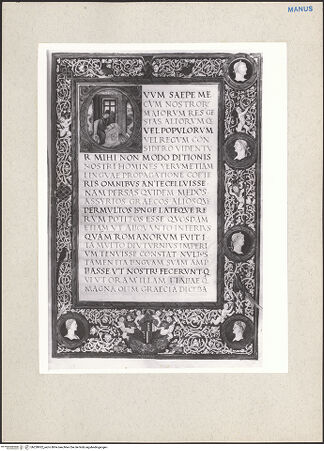 MANUS
VVM SAEPE ME
CVM NOSTROR
MAIORVM RES GE
STAS ALIORVM Q
VEL POPVLORVM
VEL REGVM CON
SIDERO VIDENTV
R MIHI NON MODO DITIONIS
NOSTRI HOMINES VERVM ETIAM
LINGVAE PROPAGATIONE CAETE
RIS OMNIBVS ANTECELLVISSE
NAM PERSAS QVIDEM MEDOS
ASSYRIOS GRAECOS ALIOSQVE
PERMVLTOS LONGE LATEQVE RE
RVM POTITOS ESSE QVOSDAM
ETIAM VT ALIQVANTO INFERIVS
QVAM ROMANORVM FVIT I
LA MVLTO DIVTVRNIVS IMPERI
VM TENVISSE CONSTAT NVLLOS
TAMEN ITA LINGVAM SVAM AMP
LIASSE VT NOSTRI FECERVNT Q
VI VT ORAM ILLAM ITALIAE Q
MAGNA OLIM GRAECIA DICEBA